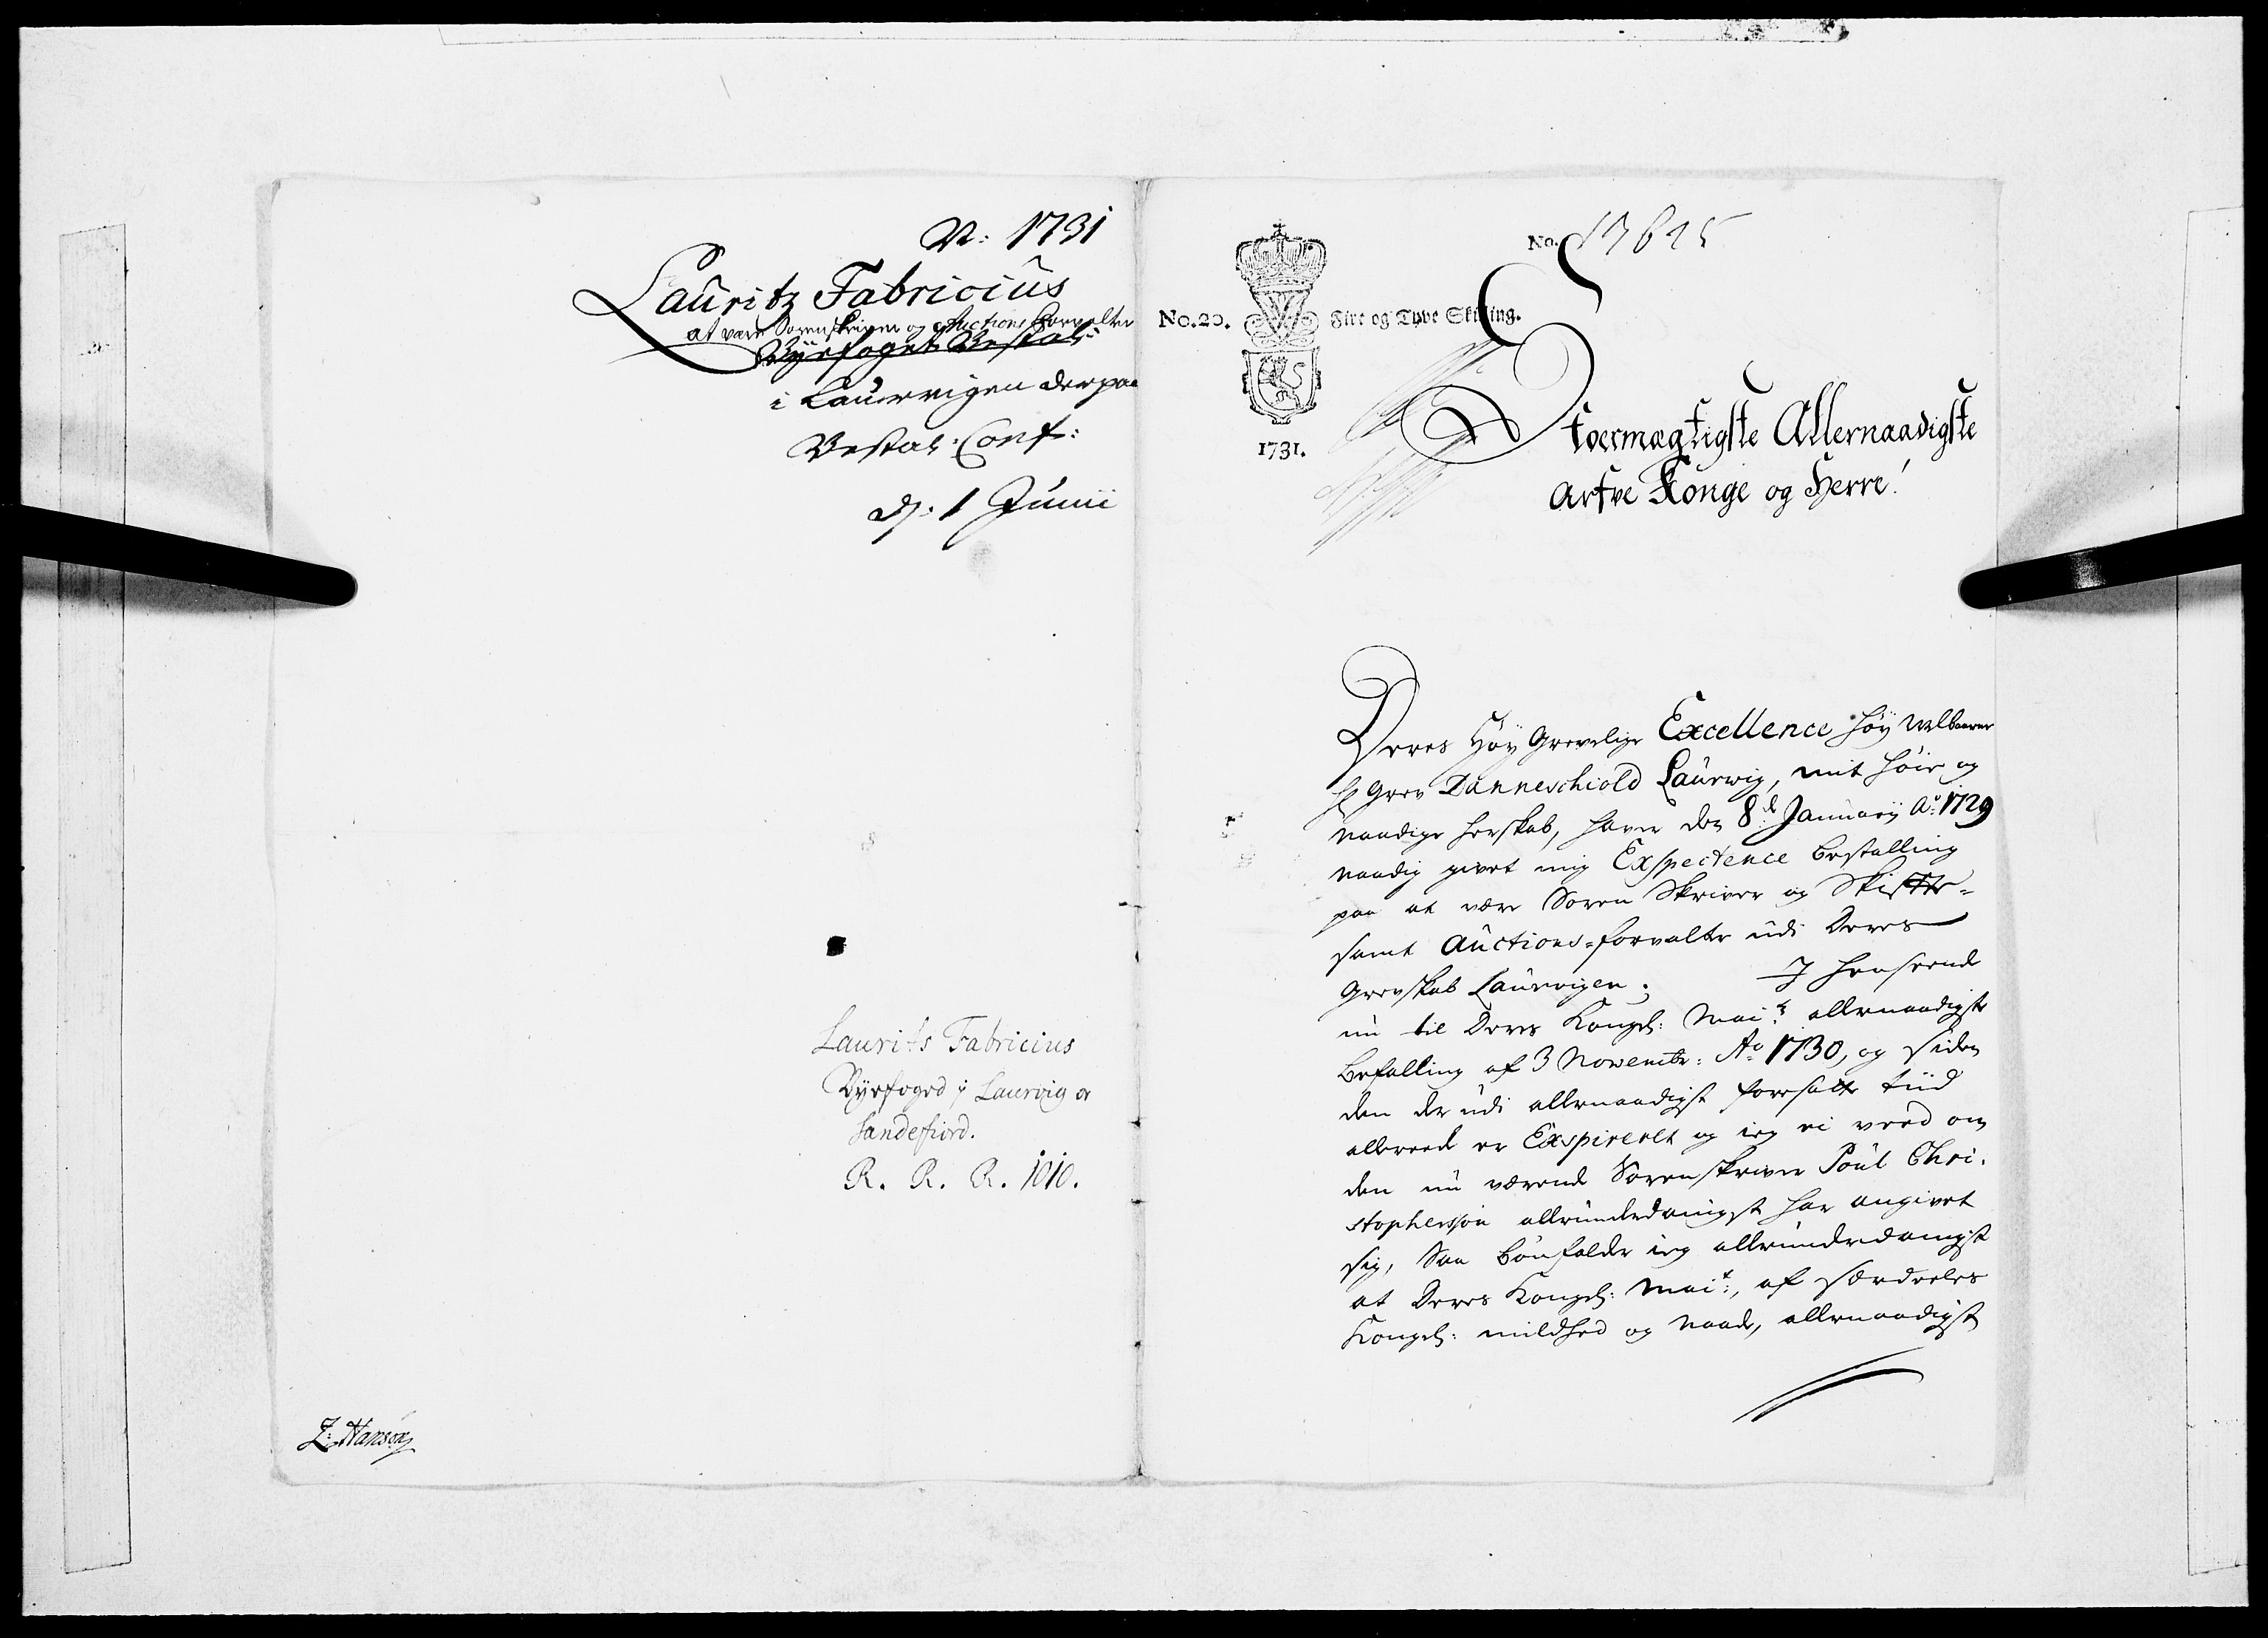 N: 1731
Lauritz Fabricius
at være Sorenskriver og Auctions Forvalter
Byefoget Bestal:
i Laurvigen derpaa
Bestal: Conf:
d: 1 Junii
Laurits Fabricius
Byefoged i Laurvig og
Sandefiord.
R. R. R. 1010.
L: Hansøn
No. 17615
No. 20. Fire og Tyve Skilling.
1731.
Stoermægtigste Allernaadigste
Arfve Konge og Herre!
Deres Høy Grevelige Excellence Høy Welbaarne
Hr Grev Danneschiold Laurwig, mit høie og
naadige herskab, haver den 8de Januarij Ao: 1729
naadig givet mig Exspectence bestalling
paa at være Soren Skriver og Skifte-
samt Auctions-forvalter udi Deres
Grevskab Laurvigen; I henseende
nu til Deres Kongel: Mai:ts allernaadigste
befalling af 3 Novembr: Ao 1730, og siden
den der udi allernaadigst foresatte tiid
allereede er Exspireret og ieg ei veed om
den nu værende Sorenskriver Poul Chri-
stophersøn allerunderdanigst har angivet
sig, Saa bønfalder ieg allerunderdanigst
at Deres Kongel: Mai:t, af særdeeles
Kongel: mildhed og Naade, allernaadigst